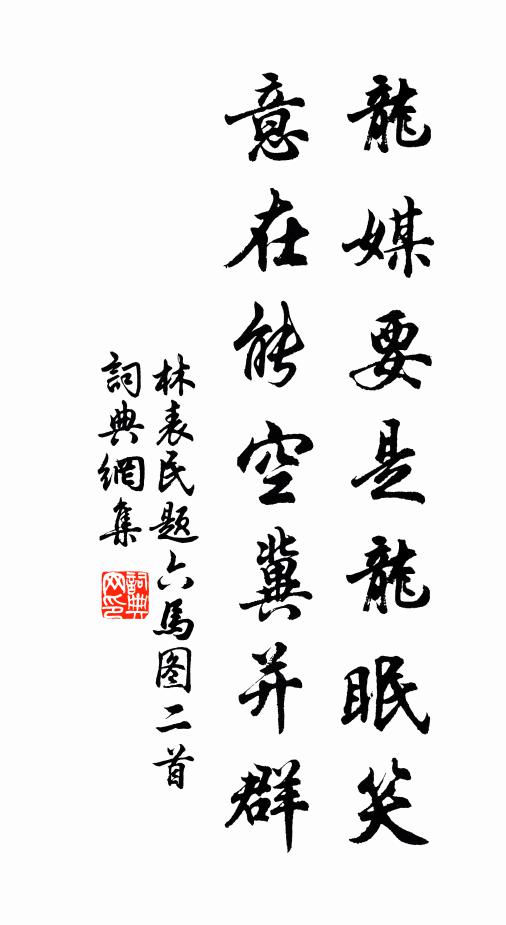 龍媒要是龍眠笑
意在能空冀并群
林表民题六馬图二首
詞典網集
詞典网印